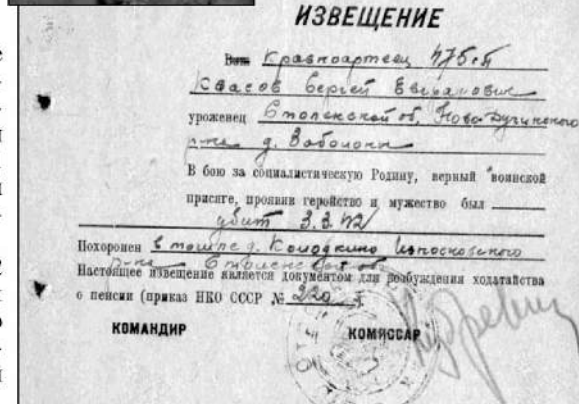 ИЗВЕЩЕНИЕ
Ваш красноармеец 475 сп
Квасов Сергей
уроженец Смоленской об, Ново Дугинского
р-на д.
В бою за социалистическую Родину, верный воинской
присяге, проявив геройство и мужество был
убит 3.3.42
Похоронен в д. Колодкино
р-на Смоленской об
Настоящее извещение является документом для возбуждения ходатайства
о пенсии (приказ НКО СССР № 220
КОМАНДИР КОМИССАР